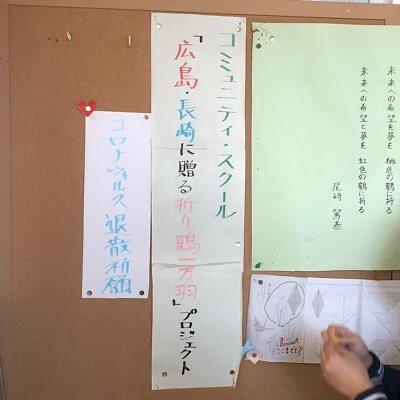 コミュニティ・スクール
「広島・長崎に贈る折り鶴一万羽」プロジェクト
コロナウィルス退散祈願
未来への希望を夢を 桃色の鶴に折る
未来への希望と夢を 虹色の鶴に折る
尾崎 篤泰
ここまで!!